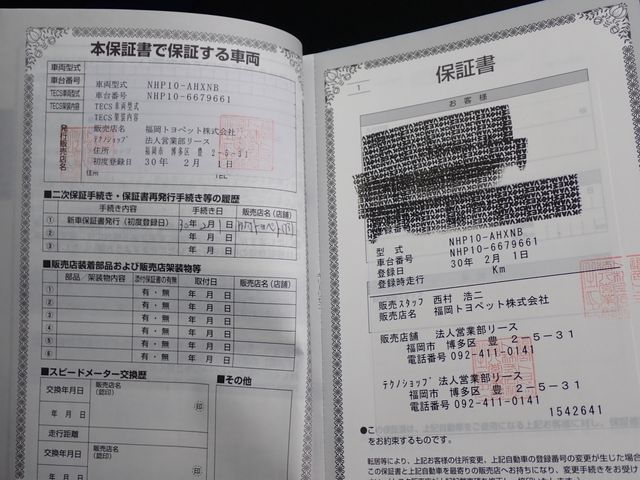 本保証書で保証する車両
車両型式
車台番号
TECS車両型式
TECS架装内容
発行販売店名
車両型式 NHP10-AHXNB
車台番号 NHP10-6679661
TECS車両型式
TECS架装内容
販売店名 福岡トヨペット株式会社
テクノショップ 法人営業部リース
住所 福岡市 博多区 豊 2-5-31
初度登録日 30年 2月 1日
■二次保証手続き・保証書再発行手続き等の履歴
手続き内容 手続き日 販売店名(店舗)
① 新車保証書発行(初度登録日) 30年2月1日 福岡トヨペット
② 年 月 日
③ 年 月 日
■販売店装着部品および販売店架装物等
部品/架装物内容 添付保証書の有無 取付日 販売店名(店舗)
① 有・無 年 月 日
② 有・無 年 月 日
③ 有・無 年 月 日
④ 有・無 年 月 日
⑤ 有・無 年 月 日
⑥ 有・無 年 月 日
■スピードメーター交換歴
交換年月日 販売店名(認印)
年 月 日 印
走行距離
交換年月日 販売店名(認印)
年 月 日 印
■その他
1
保証書
お客様
型式 NHP10-AHXNB
車台番号 NHP10-6679661
登録日 30年 2月 1日
登録時走行 Km
販売スタッフ 西村 浩二
販売店名 福岡トヨペット株式会社
販売店舗 法人営業部リース
福岡市 博多区 豊 2-5-31
電話番号 092-411-0141
テクノショップ 法人営業部リース
福岡市 博多区 豊 2-5-31
電話番号 092-411-0141
1542641
をお約束するものです。
転居等により、上記お客様の住所変更、上記自動車の登録番号の変更が生じた場合
この保証書と上記自動車を最寄りの販売店へお持ちになり、変更手続きをお受け